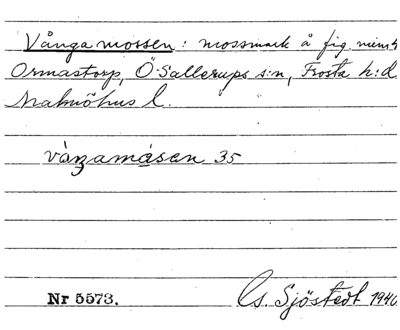 Vånga mossen: mossmark å fig. nämnt
Ormastorp, Ö Sallerups s:n, Frosta h:d
Malmöhus l.
våŋamåsen 35
Nr 5573. Cs. Sjöstedt 1940